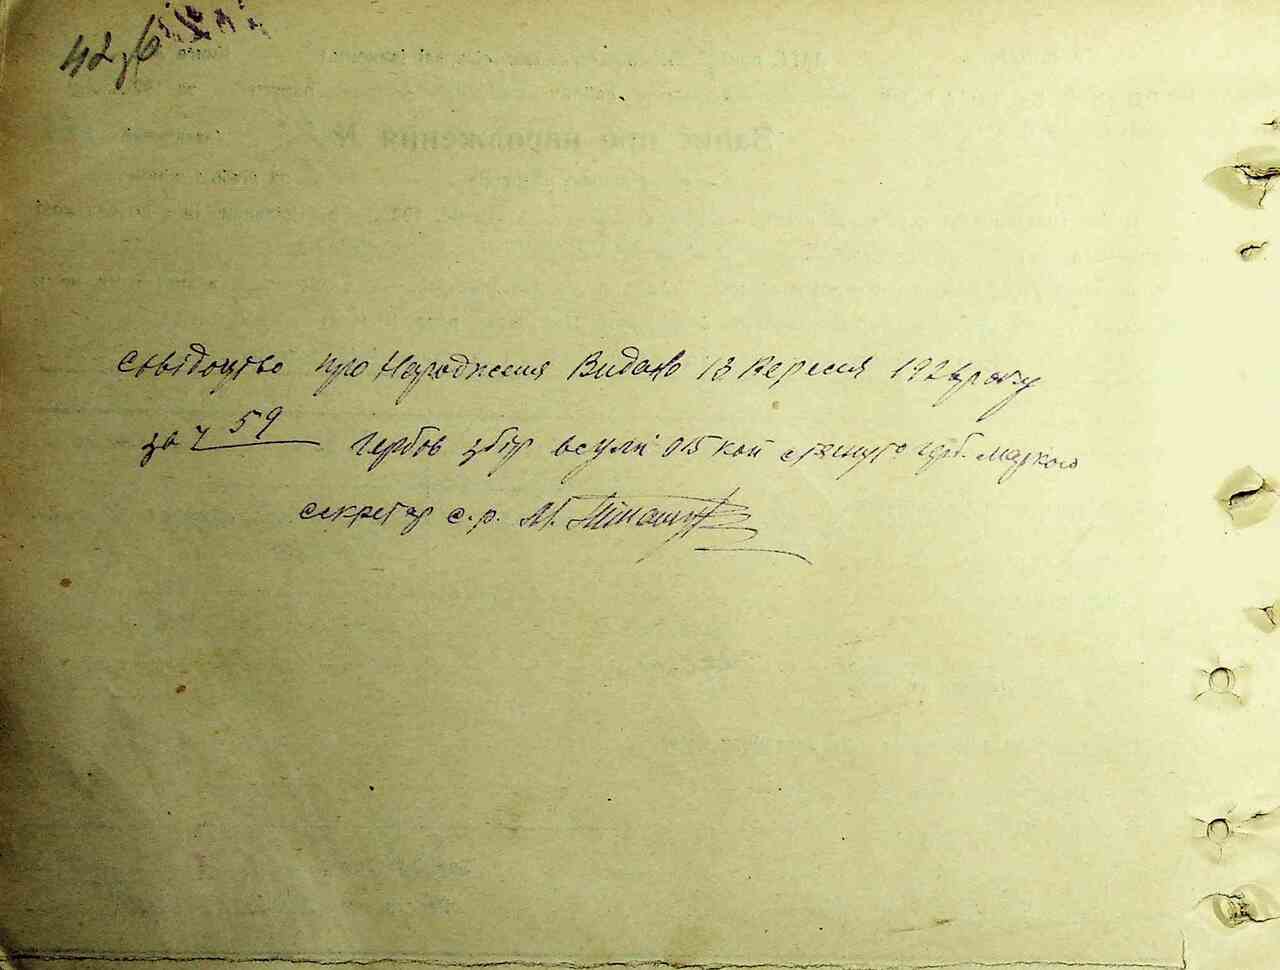 свідоцтво про Народження Видано 13 Вересня 192 року
за ч 59 гербов збір всумі 015 коп стянуто герб. маркою
секретар с.р.